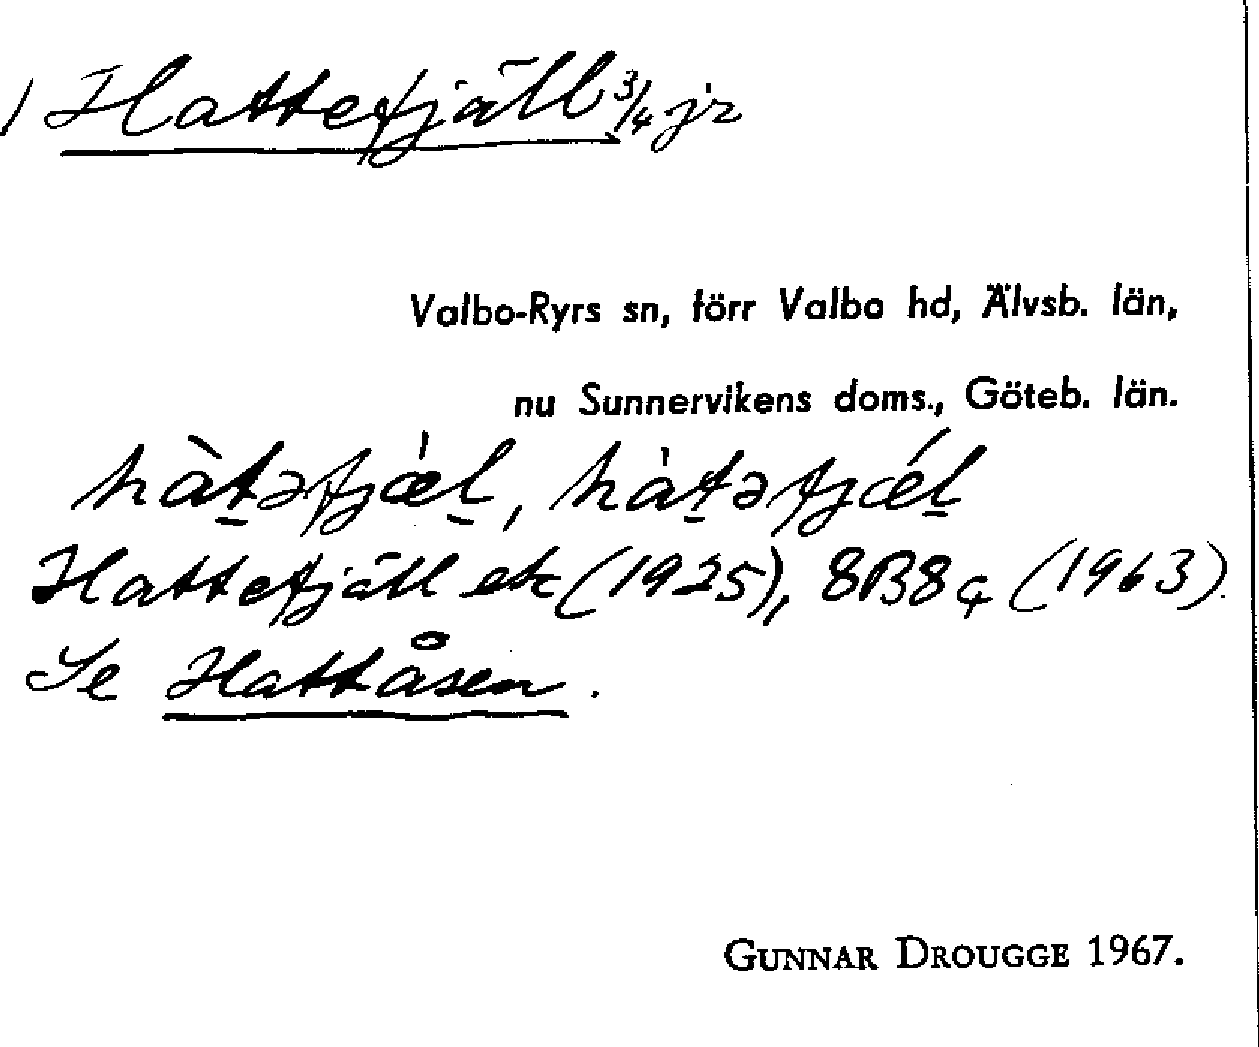 1) Hattefjäll 3/4 jr
Valbo-Ryrs sn, förr Valbo hd, Älvsb. län,
nu Sunnervikens doms., Göteb. län.
hàt̠əfjæ̀l̠, hàt̠əfjǽl̠
Hattefjäll ek (1925), 8B8 ç (1963).
Se Hattåsen.
GUNNAR DROUGGE 1967.